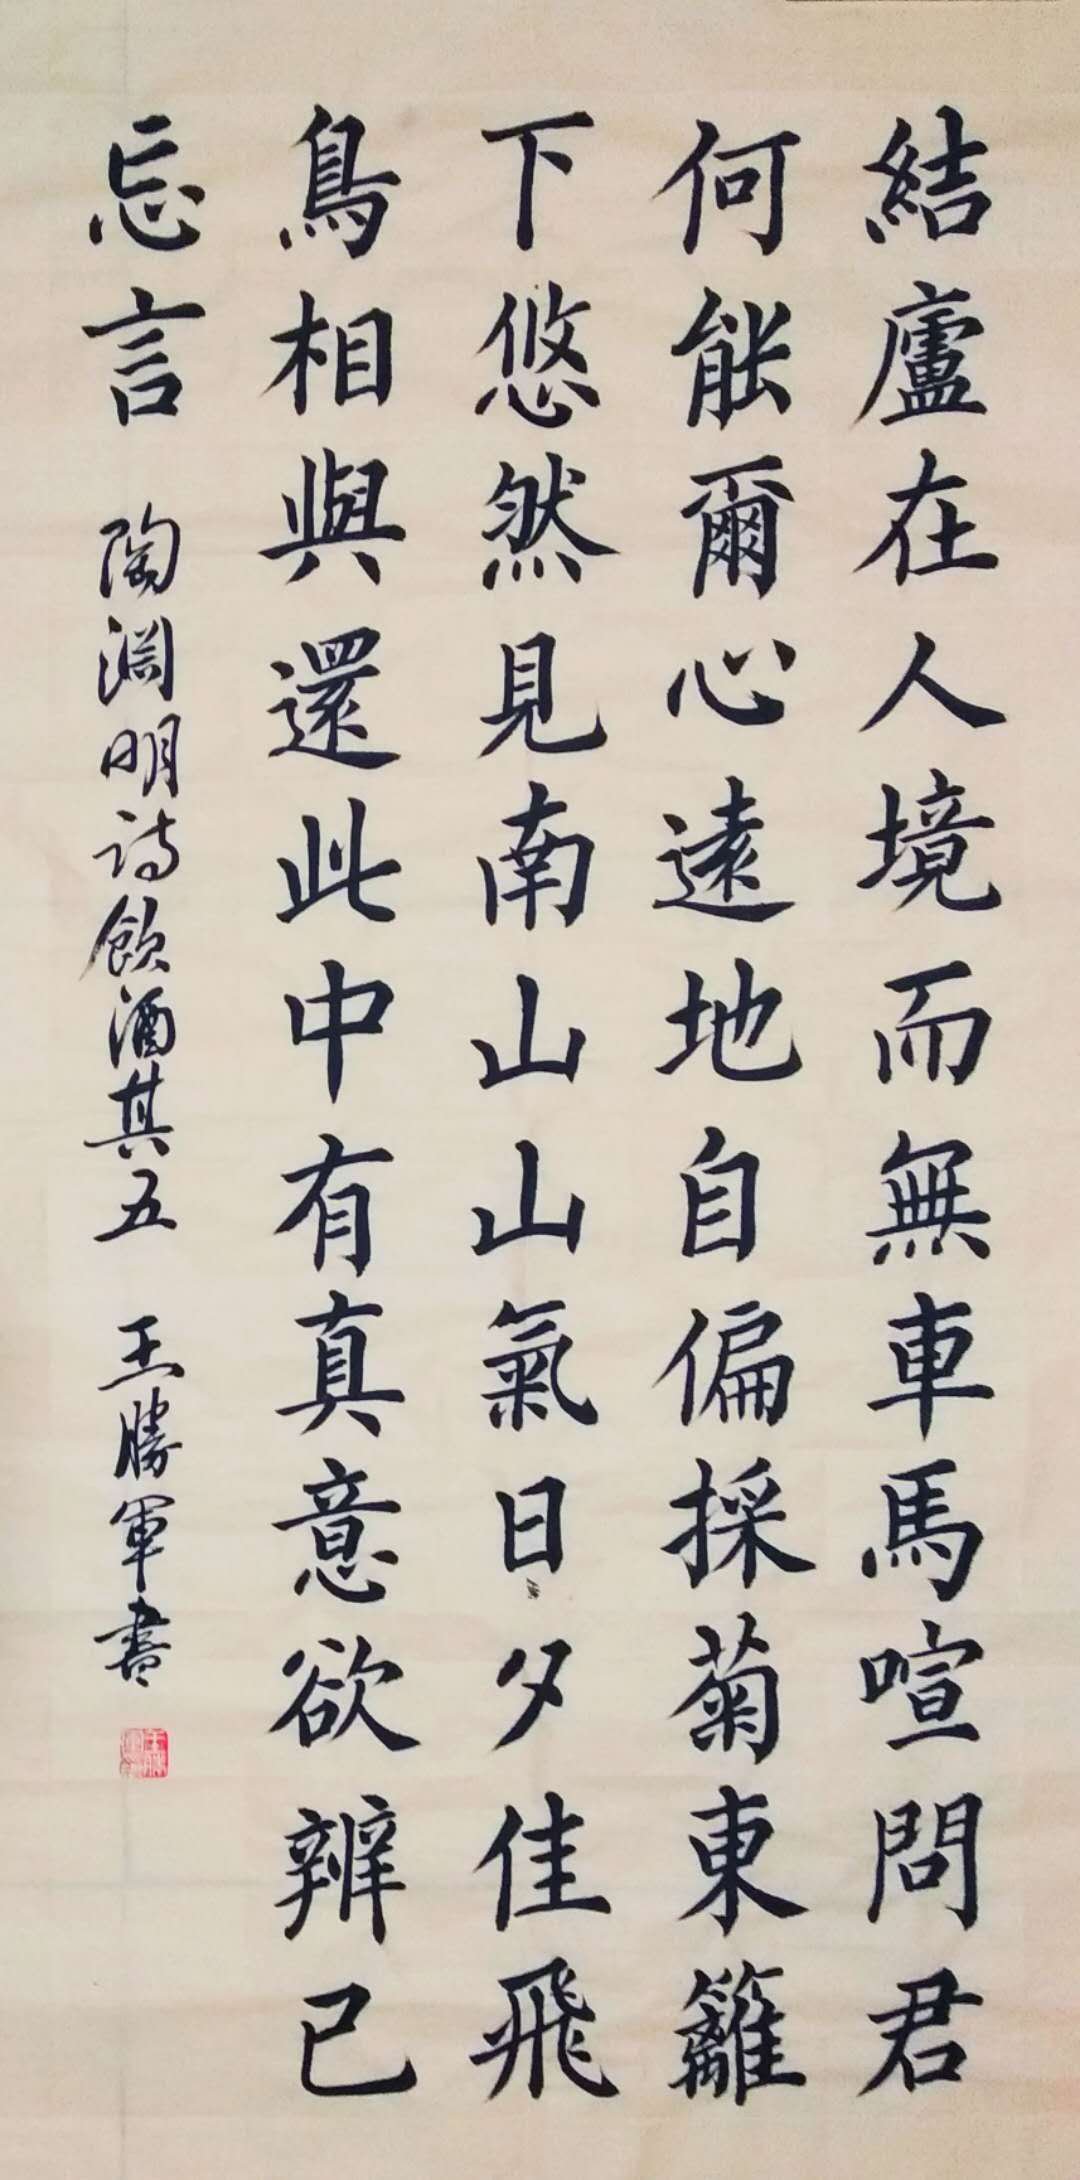 結廬在人境而無車馬喧問君
何能爾心遠地自偏採菊東籬
下悠然見南山山氣日夕佳飛
鳥相與還此中有真意欲辨已
忘言 陶淵明詩飲酒其五 王勝軍書